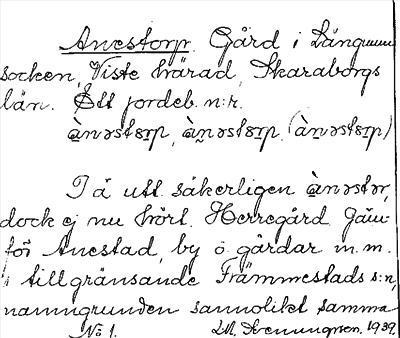 Anestorp. Gård i Lång
socken, Viste härad, Skaraborgs
län. Ett jordeb. n:r.
ànəstɔrp, àn̰əstɔrp, (àn̰əstɔrp)
I ä utt. säkerligen ànəstər,
dock ej nu hört. Herregård. Jäm-
för Anestad, by o. gårdar m.m.
i tillgränsande Främmestads s:n,
namngrunden sannolikt samma
No 1. 1939.